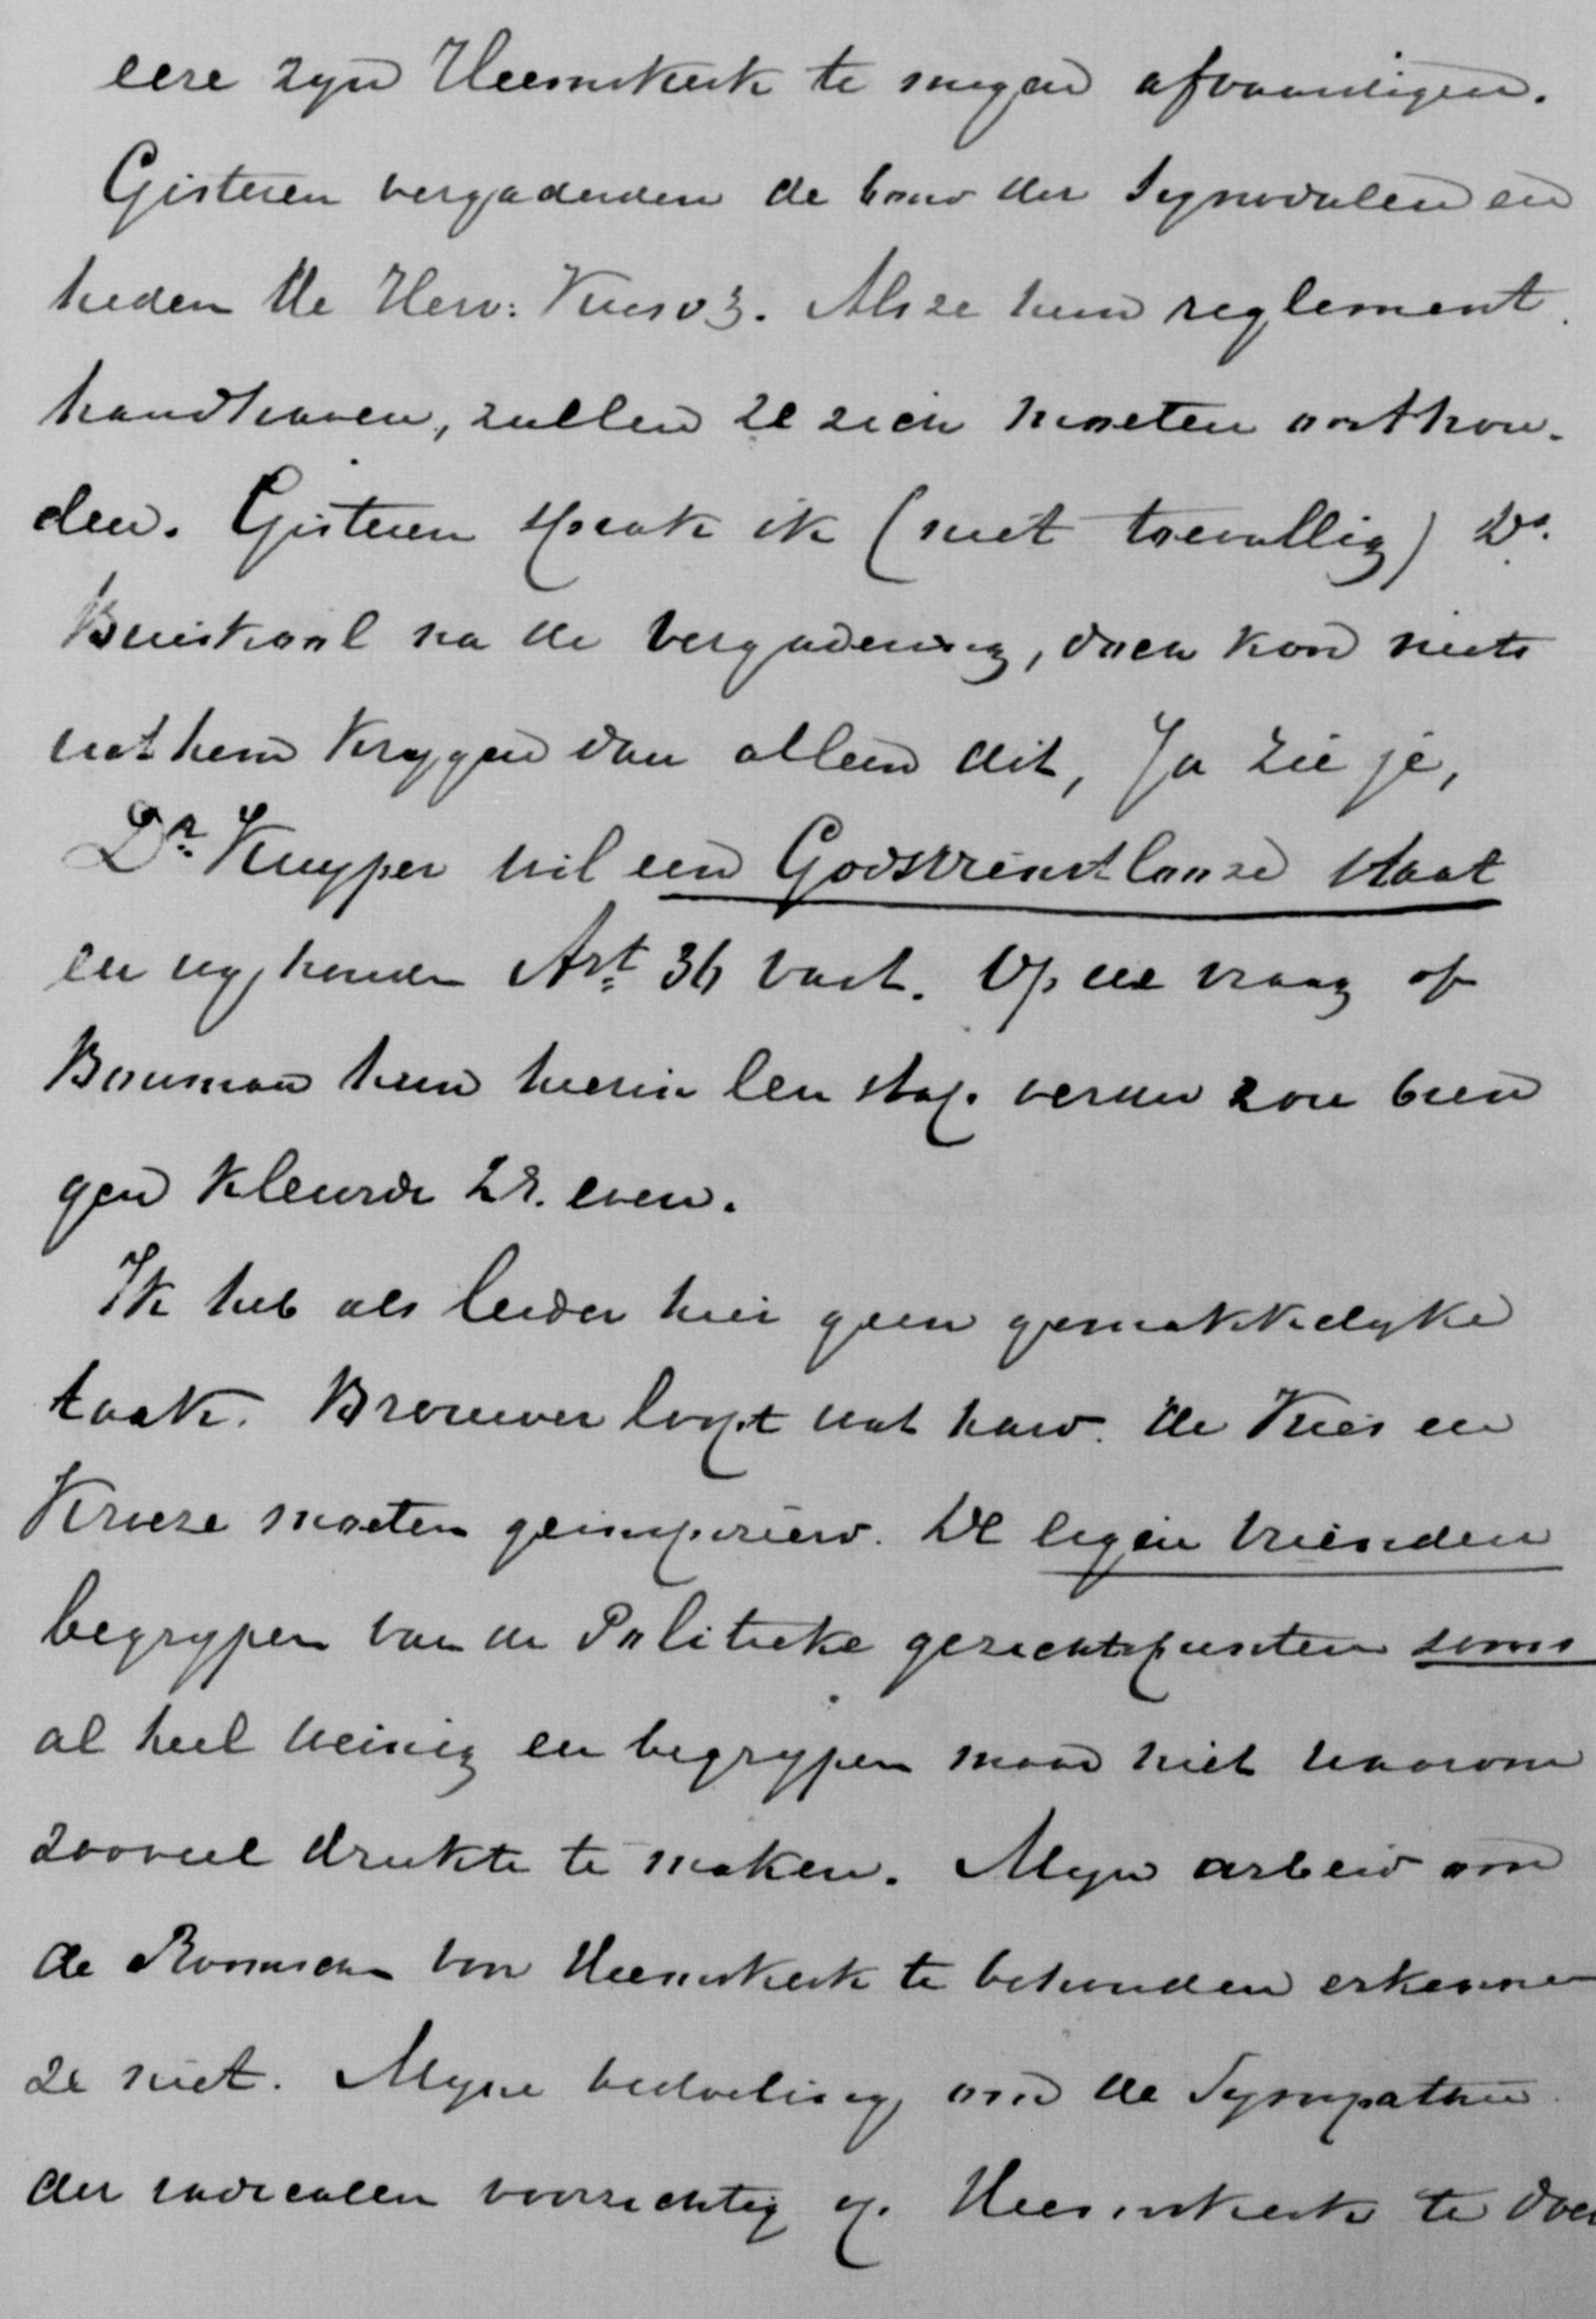 eere zyn Heemskerk te mogen afvaardigen.
Gisteren vergaderden de bond der Synodalen en
heden de Herv: Kiesv3. Als ze hun reglement
handhaven, zullen ze zich moeten onthou-
den. Gisteren sprak ik (niet toevallig) Ds.
Buiskool na de vergadering, doch kon niets
uit hem krygen dan alleen dit, Ja zie je,
Dr. Kuyper wil een Godsdienstlooze Staat
en wy houden Art. 36 vast. Op de vraag of
Bouman hun hierin een stap verder zou bren
gen kleurde ZE. even.
Ik heb als leider hier geen gemakkelyke
taak. Brouwer loopt uit hand. de Vries en
Kruese moeten geinspireerd. De eigen vrienden
begrypen van de Politieke gezichtspunten soms
al heel weinig en begrypen maar niet waarom
zooveel drukte te maken. Myn arbeid om
de Roomschen voor Heemskerk te behouden erkennen
ze niet. Myne bedoeling om de Sympathie
der radicalen voorzichtig op Heemskerk te doen